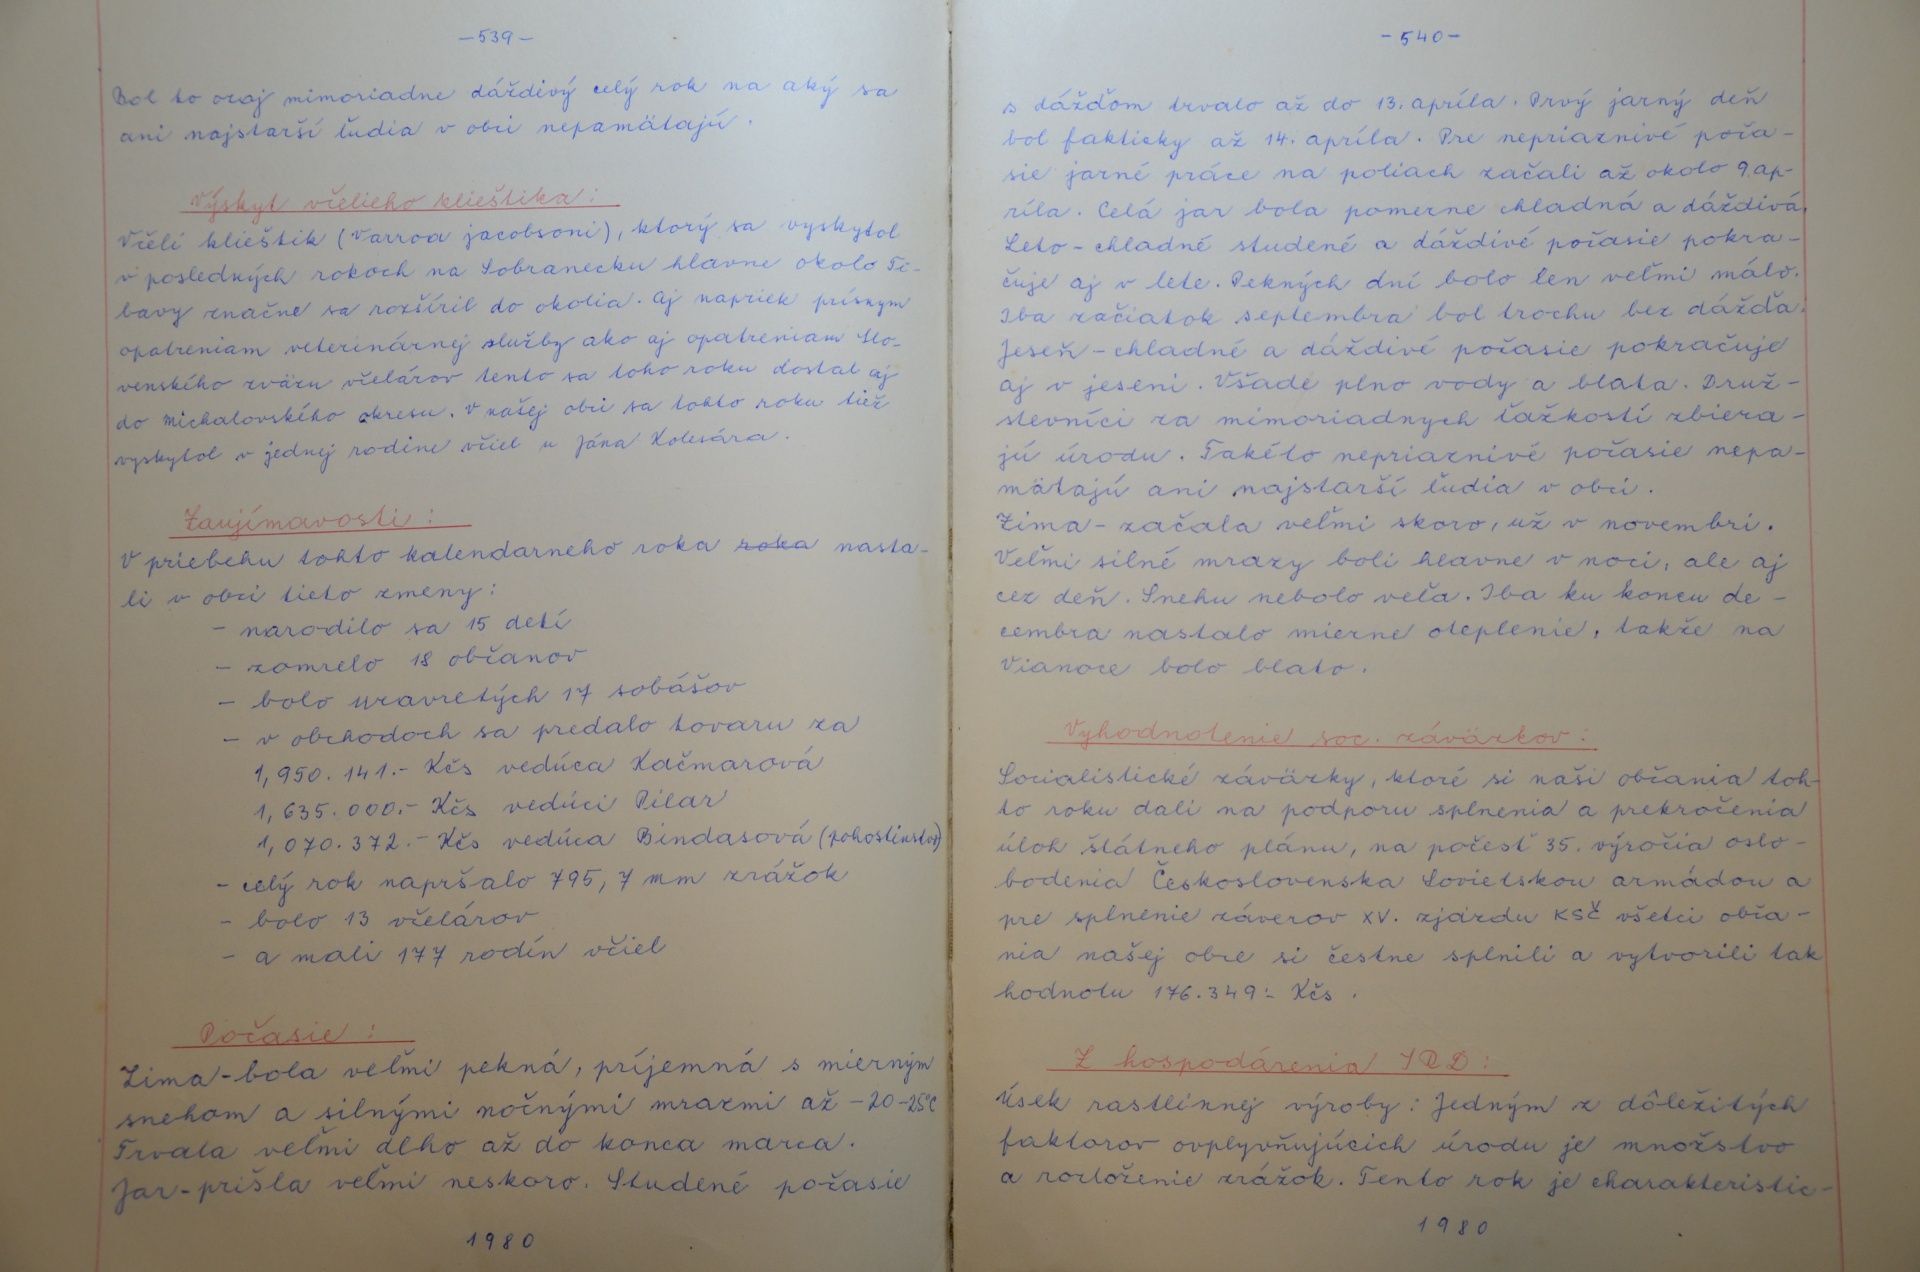 -539-
Bol to ozaj mimoriadne dáždivý celý rok na aký sa
ani najstarší ľudia v obci nepamätajú.
Výskyt včelieho klieštika:
Včelí klieštik (Varroa jacobsoni), ktorý sa vyskytol
v posledných rokoch na Sobranecku hlavne okolo Ti-
bavy značne sa rozšíril do okolia. Aj napriek prísnym
opatreniam veterinárnej služby ako aj opatreniam Slo-
venského zväzu včelárov tento sa toho roku dostal aj
do Michalovského okresu. V našej obci sa tohto roku tiež
vyskytol v jednej rodine včiel u Jána Kolesára.
Zaujímavosti:
V priebehu tohto kalendarneho roka roka nasta-
li v obci tieto zmeny:
- narodilo sa 15 detí
- zomrelo 18 občanov
- bolo uzavretých 17 sobášov
- v obchodoch sa predalo tovaru za
1,950.141.- Kčs vedúca Kačmarová
1,635.000.- Kčs vedúci Pilar
1,070.372.- Kčs vedúca Bindasová (pohostinstvo)
- celý rok napršalo 795,7 mm zrážok
- bolo 13 včelárov
- a mali 177 rodín včiel
Počasie:
Zima-bola veľmi pekná, príjemná s miernym
snehom a silnými nočnými mrazmi až -20-25°C
Trvala veľmi dlho až do konca marca.
Jar-prišla veľmi neskoro. Studené požasie
1980
-540-
s dážďom trvalo až do 13. apríla. Prvý jarný deň
bol fakticky až 14. apríla. Pre nepriaznivé poča-
sie jarné práce na poliach začali až okolo 9.ap-
ríla. Celá jar bola pomerne chladná a dáždivá.
Leto-chladné studené a dáždivé počasie pokra-
čuje aj v lete. Pekných dní bolo len veľmi málo.
Iba začiatok septembra bol trochu bez dážďa.
Jeseň-chladné a dáždivé počasie pokračuje
aj v jeseni. Všade plno vody a blata. Druž-
stevníci za mimoriadnych ťažkostí zbiera-
jú úrodu. Takéto nepriaznivé počasie nepa-
mätajú ani najstarší ľudia v obci.
Zima-začala veľmi skoro, už v novembri.
Veľmi silné mrazy boli hlavne v noci, ale aj
cez deň. Snehu nebolo veľa. Iba ku koncu de-
cembra nastalo mierne oteplenie, takže na
Vianoce bolo blato.
Vyhodnotenie soc. záväzkov:
Socialistické záväzky, ktoré si naši občania toh-
to roku dali na podporu splnenia a prekročenia
úloh štátneho plánu, na počesť 35. výročia oslo-
bodenia Československa Sovietskou armádou a
pre splnenie záverov XV. zjazdu KSČ všetci obča-
nia našej obce si čestne splnili a vytvorili tak
hodnotu 176.349.- Kčs.
Z hospodárenia JRD:
Úsek rastlinnej výroby: Jedným z dôležitých
faktorov ovplyvňujúcich úrodu je množstvo
a rozloženie zrážok. Tento rok je charakteristic-
1980